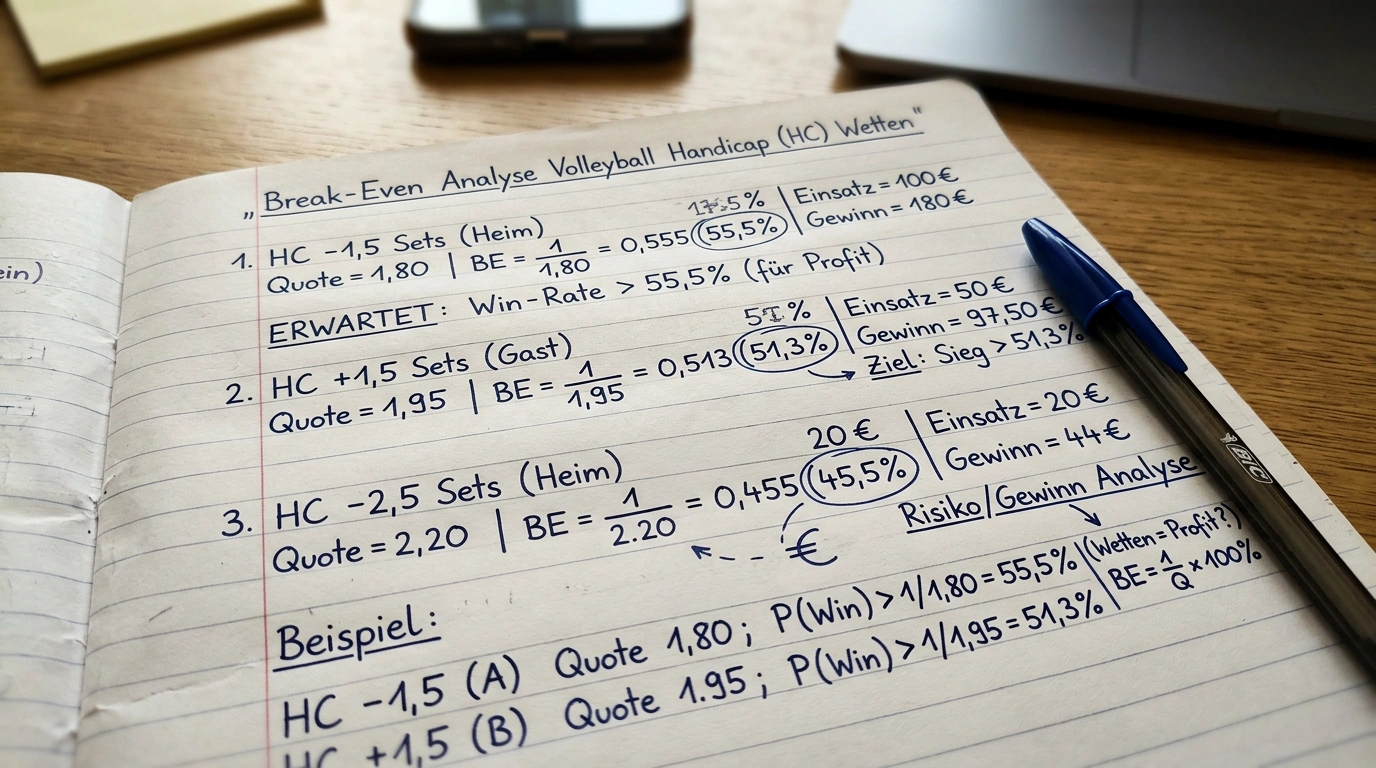 ein)
„Break-Even Analyse Volleyball Handicap (HC) Wetten"
1. HC -1,5 Sets (Heim)
Quote = 1,80 | BE = 1/1,80 = 0,555 (55,5%)
Einsatz = 100 €
Gewinn = 180 €
ERWARTET: Win-Rate > 55,5% (für Profit)
2. HC +1,5 Sets (Gast)
Quote = 1,95 | BE = 1/1,95 = 0,513 (51,3%)
Einsatz = 50 €
Gewinn = 97,50 €
Ziel: Sieg > 51,3%
3. HC -2,5 Sets (Heim)
20 €
Quote = 2,20 | BE = 1/2.20 = 0,455 (45,5%)
Einsatz = 20 €
Gewinn = 44 €
€
Risiko/Gewinn Analyse
(Wetten = Profit?)
BE = 1/Q × 100%
Beispiel:
HC -1,5 (A) Quote 1,80; P(Win) > 1/1,80 = 55,5%
HC +1,5 (B) Quote 1.95; P(Win) > 1/1,95 = 51,3%
BIC